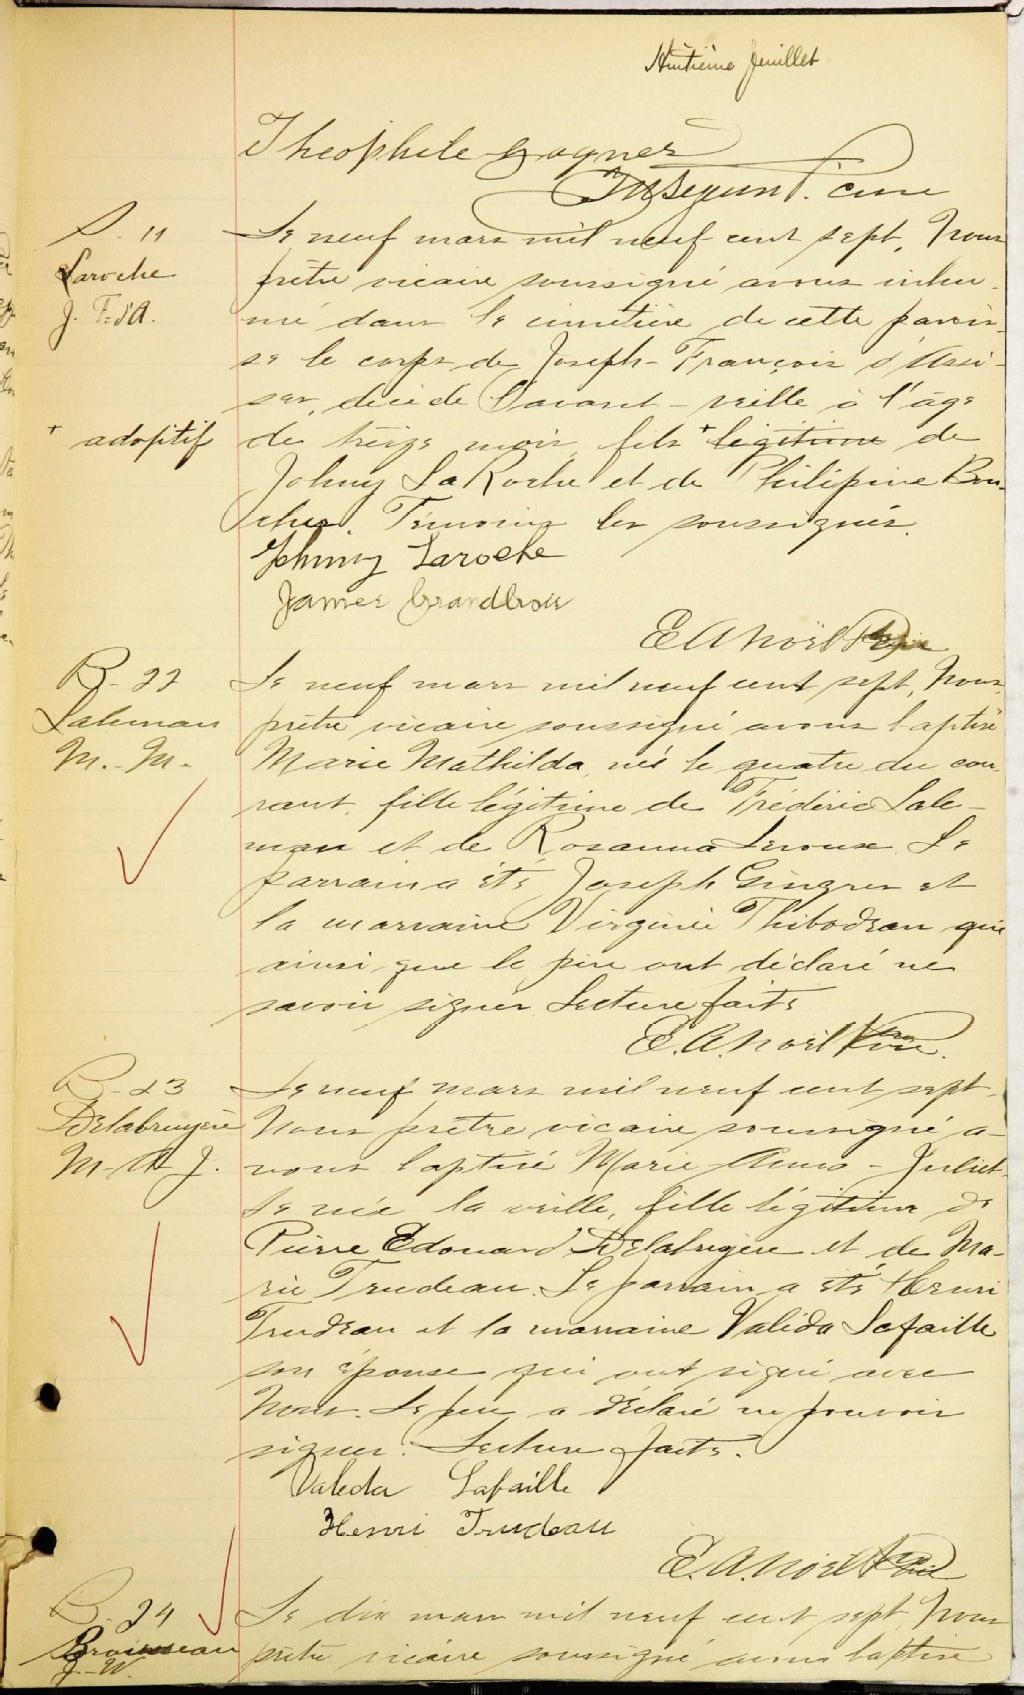 Huitième feuillet
Théophile Gagnés
curé
S. 11
Laroche
J. F. d'A.
Le neuf mars mil neuf cent sept, Nous
prêtre vicaire soussigné avons inhu-
mé dans le cimetière de cette parois-
se le corps de Joseph-François d'Assi-
ses, décédé l'avant-veille à l'âge
+ adoptif
de treize mois, fils + légitime de
Johny LaRoche et de Philipine Bou-
cher. Témoins les soussignés.
Johnny Laroche
James Grandbois
E A Noël Ptre
B-22
Laleman
M.-M-
Le neuf mars mil neuf cent sept, Nous,
prêtre vicaire soussigné avons baptisé
Marie Mathilda, née le quatre du cou-
rant, fille légitime de Frédéric Lale-
man et de Rosanna Leroux. Le
parrain a été Joseph Gingras et
la marraine Virginie Thibodeau qui
ainsi que le père ont déclaré ne
savoir signer. Lecture faite
E.A. Noël Ptre
B-23
Delabruyère
M-A J.
Le neuf mars mil neuf cent sept,
Nous prêtre vicaire soussigné a-
vons baptisé Marie Anna-Juliet-
te née la veille, fille légitime de
Pierre Edouard Delabruyère et de Ma-
rie Trudeau. Le parrain a été Henri
Trudeau et la marraine Valéda Lafaille
son épouse qui ont signé avec
Nous. Le père a déclaré ne pouvoir
signer. Lecture faite.
Valeda Lafaille
Henri Trudeau
E. A. Noël Ptre
B-24
Brousseau
J-W.
Le dix mars mil neuf cent sept, Nous
prêtre vicaire soussigné avons baptisé